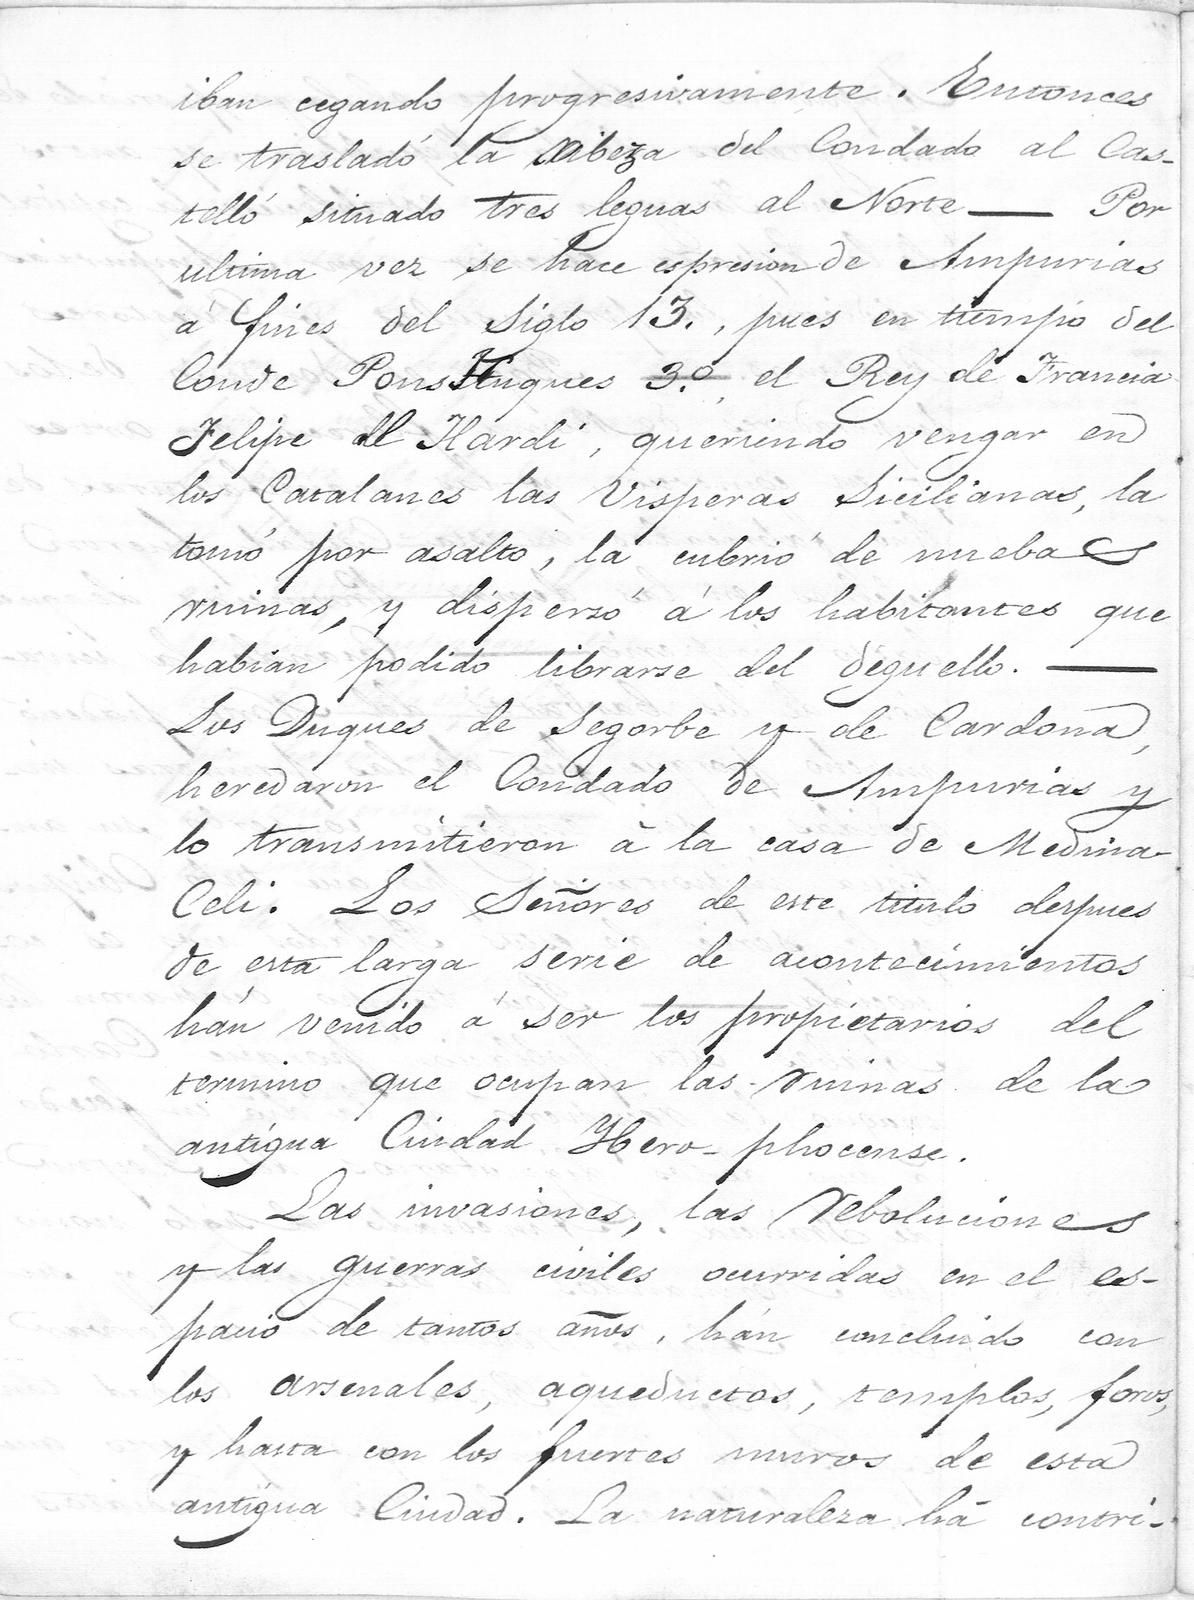 iban cegando progresivamente. Entonces
se trasladó la cabeza del Condado al Cas-
telló situado tres leguas al Norte — Por
ultima vez se hace espresion de Ampurias
á fines del Siglo 13., pues en tiempo del
Conde Pons Hugues 3.º, el Rey de Francia
Felipe el Hardi, queriendo vengar en
los Catalanes las Visperas Sicilianas, la
tomó por asalto, la cubrió de nuebas
ruinas, y disperzó á los habitantes que
habian podido librarse del deguello. —
Los Duques de Segorbe y de Cardona,
heredaron el Condado de Ampurias y
lo transmitieron à la casa de Medina-
Celi. Los Señores de este titulo despues
de esta larga serie de acontecimientos
hán venido á ser los propietarios del
termino que ocupan las ruinas de la
antígua Ciudad Ibero-phocense.
Las invasiones, las reboluciones
y las guerras civiles ocurridas en el es-
pacio de tantos años, hán concluido con
los arsenales, aqueductos, templos, foros,
y hasta con los fuertes muros de esta
antígua Ciudad. La naturaleza há contri-